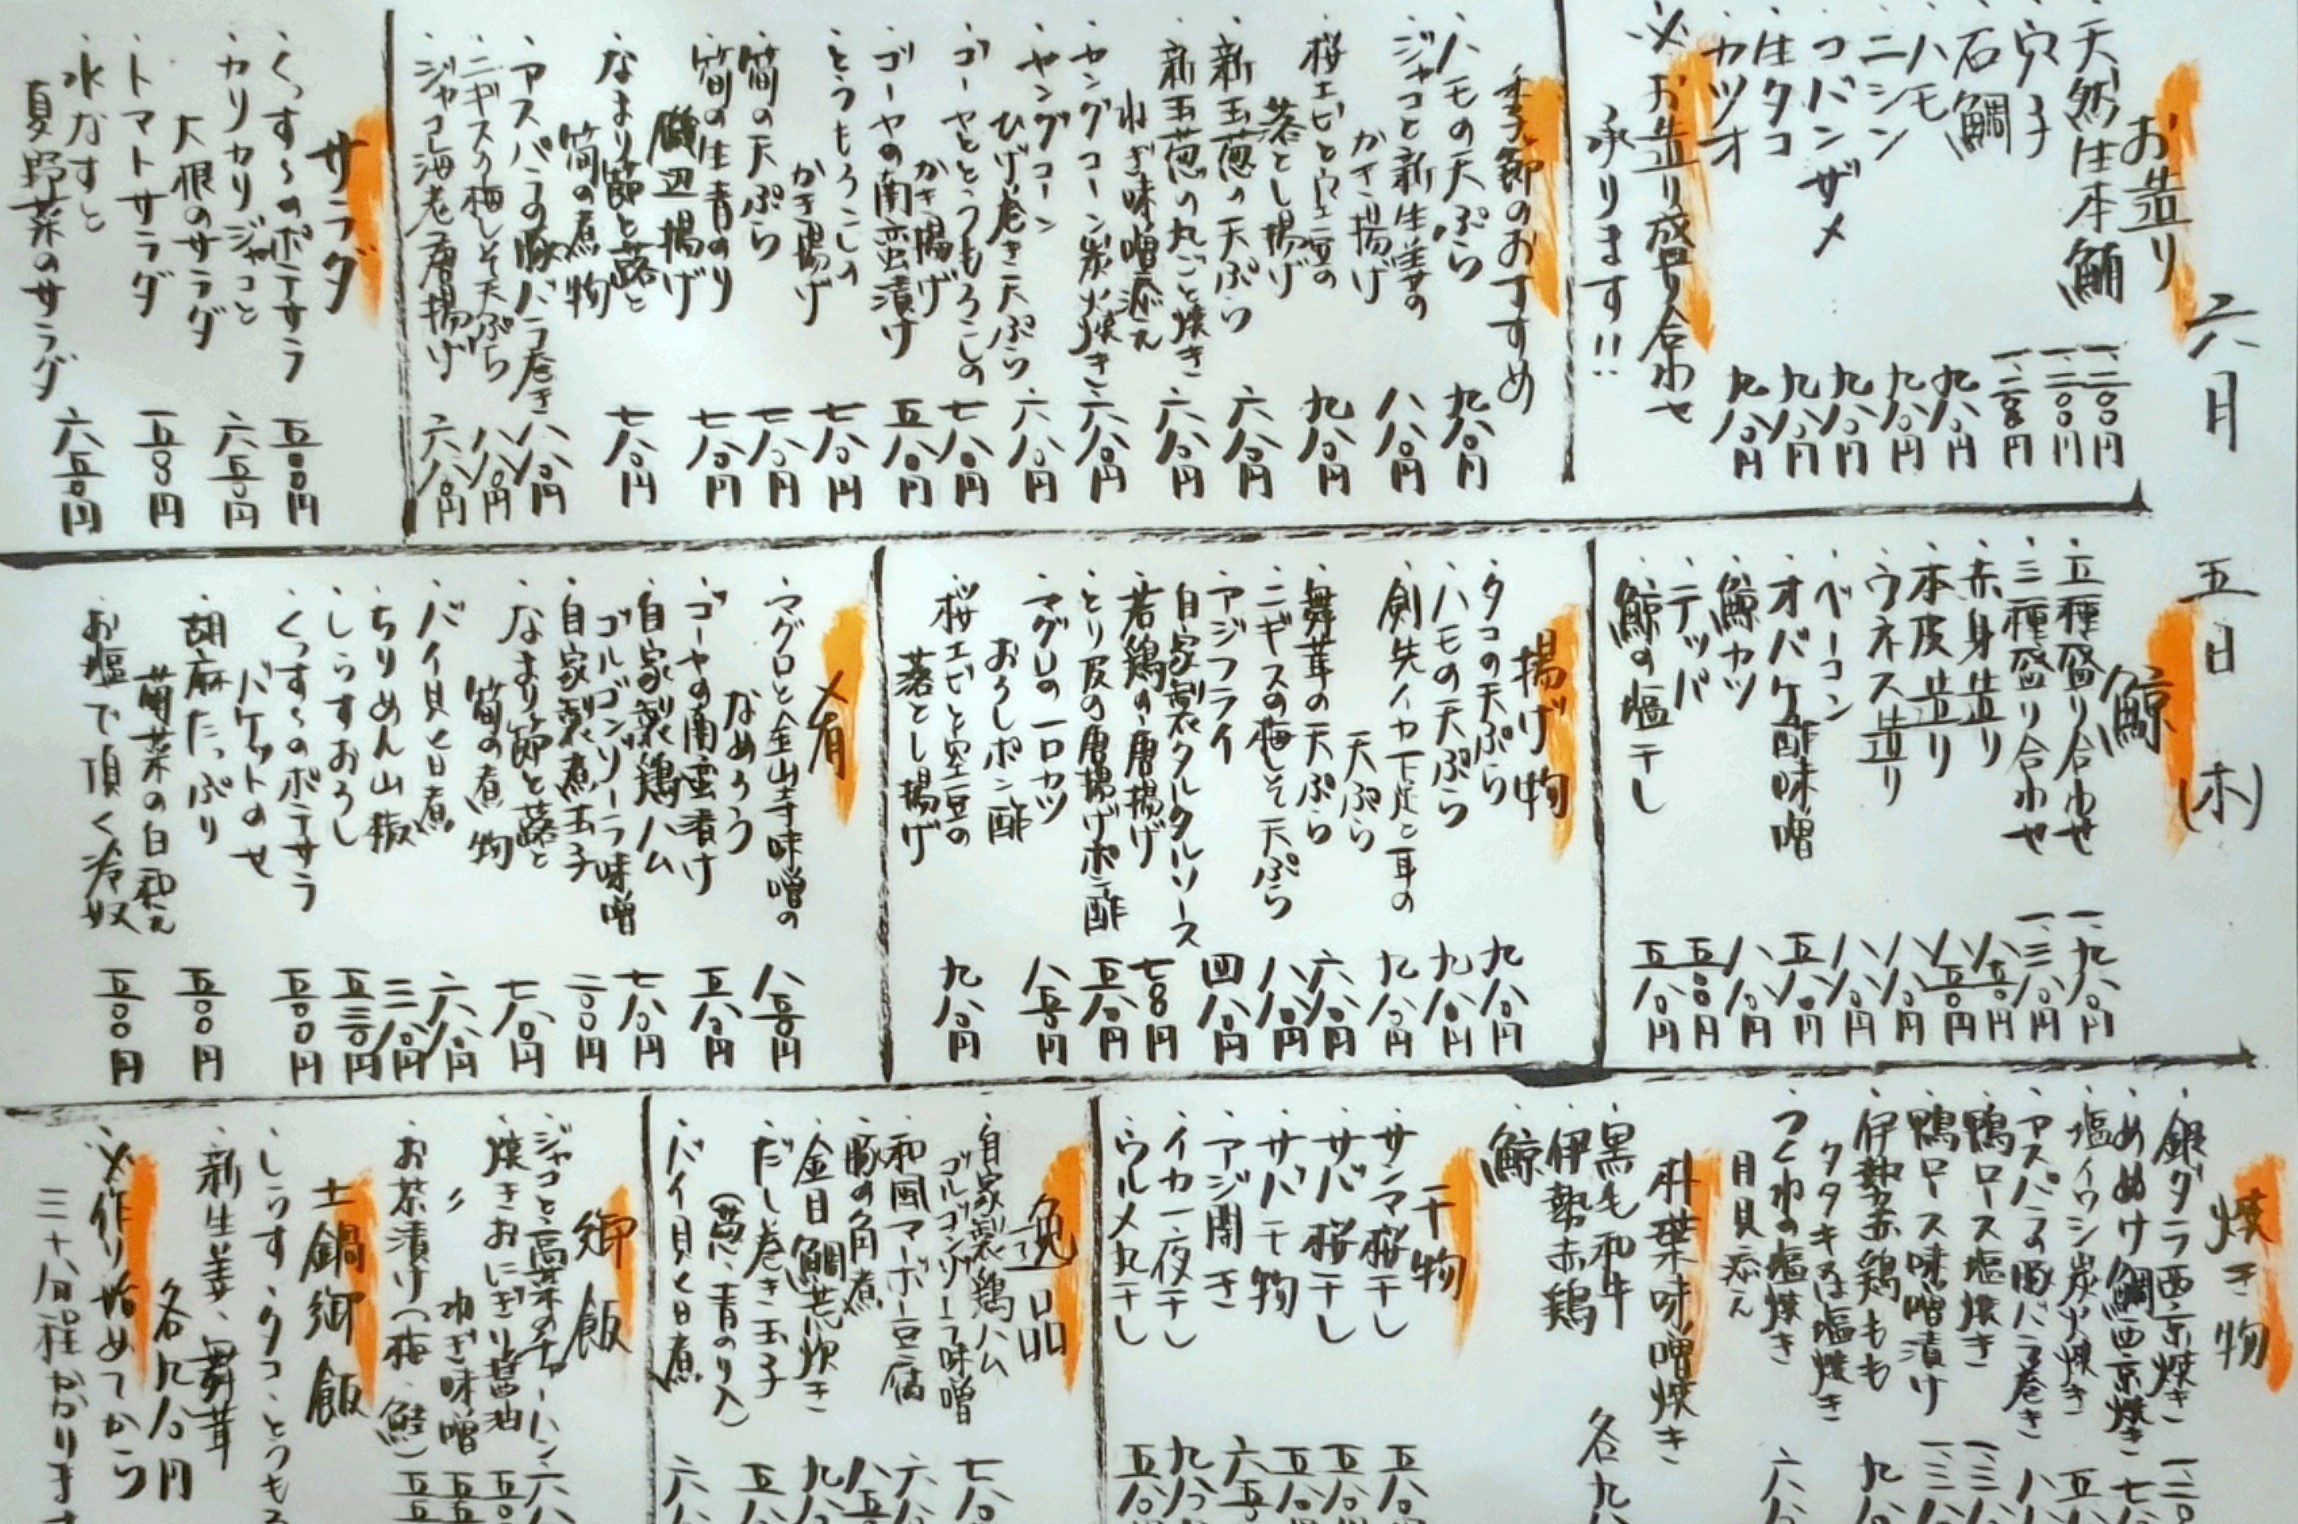 六月 五日(木)
お造り
・天然生本鮪 一、二〇〇円
・穴子 一、二〇〇円
・石鯛 一、二〇〇円
・ハモ 九八〇円
・ニシン 九八〇円
・コバンザメ 九八〇円
・生タコ 九八〇円
・カツオ 九八〇円
※お造り盛り合わせ
承ります!!
季節のおすすめ
・ハモの天ぷら 九八〇円
・ジャコと新生姜の
かき揚げ 八八〇円
・桜エビと空豆の
落とし揚げ 九八〇円
・新玉葱の天ぷら 六八〇円
・新玉葱の丸ごと焼き
ねぎ味噌添え 六八〇円
・ヤングコーン炭火焼き 六八〇円
・ヤングコーン
ひげ巻き天ぷら 六八〇円
・ゴーヤとうもろこしの
かき揚げ 七八〇円
・ゴーヤの南蛮漬け 五八〇円
・とうもろこしの
かき揚げ 七八〇円
・筍の天ぷら 七八〇円
・筍の生青のり
磯辺揚げ 七八〇円
・なまり節と蕗と
筍の煮物 七八〇円
・アスパラの豚バラ巻き 八八〇円
・ニギスの梅しそ天ぷら 八八〇円
・ジャコ海老唐揚げ 六八〇円
サラダ
・くっす〜のポテサラ 五〇〇円
・カリカリジャコと
大根のサラダ 六五〇円
・トマトサラダ 五〇〇円
・水なすと
夏野菜のサラダ 六五〇円
鯨
・五種盛り合わせ 一、九八〇円
・三種盛り合わせ 一、三八〇円
・赤身造り 八五〇円
・本皮造り 八五〇円
・ウネス造り 八八〇円
・ベーコン 八八〇円
・オバケ酢味噌 五八〇円
・鯨カツ 八八〇円
・テッパ 五〇〇円
・鯨の塩干し 五八〇円
揚げ物
・タコの天ぷら 九八〇円
・ハモの天ぷら 九八〇円
・剣先イカ下足と耳の
天ぷら 九八〇円
・舞茸の天ぷら 六八〇円
・ニギスの梅しそ天ぷら 八八〇円
・アジフライ
自家製タルタルソース 四八〇円
・若鶏の唐揚げ 七〇〇円
・とり皮の唐揚げポン酢 五八〇円
・マグロの一口カツ
おろしポン酢 八五〇円
・桜エビと空豆の
落とし揚げ 九八〇円
肴
・マグロと金山寺味噌の
なめろう 八五〇円
・ゴーヤの南蛮漬け 五八〇円
・自家製鶏ハム
ゴルゴンゾーラ味噌 七八〇円
・自家製煮玉子 二〇〇円
・なまり節と蕗と
筍の煮物 七八〇円
・バイ貝と日煮 六八〇円
・ちりめん山椒 三八〇円
・しらすおろし 五三〇円
・くっす〜のポテサラ
バケットのせ 五〇〇円
・胡麻たっぷり
菊菜の白和え 五〇〇円
・お塩で頂く冷奴 五〇〇円
焼き物
・銀ダラ西京焼き 一、二
・あめぬけ鯛西京焼き 七
・塩イワシ炭火焼き 五
・アスパラの豚バラ巻き 八
・鴨ロース塩焼き 一、三
・鴨ロース味噌漬け 一、三
・伊勢赤鶏もも
タタキ又は塩焼き 九八
・つくねの塩焼き
月見添え 六八
朴葉味噌焼き
・黒毛和牛
・伊勢赤鶏
・鯨
各九八
干物
・サンマ桜干し 五八〇
・サバ桜干し 五八〇
・サバ干物 五八〇
・アジ開き 六五〇
・イカ一夜干し 九八〇
・ウルメ丸干し 五八〇
逸品
・自家製鶏ハム
ゴルゴンゾーラ味噌 七八〇
・和風マーボー豆腐 六八
・豚の角煮 八五
・金目鯛芒炊き 九八
・だし巻き玉子
(葱・青のり入) 五八
・バイ貝と日煮 六八
御飯
・ジャコと高菜のチャーハン 六八
・焼きおにぎり醤油 五〇
・〃 ねぎ味噌 五五
・お茶漬け(梅・鮭) 五五
土鍋御飯
・しらす・タコ・とうもろ
・新生姜・舞茸
各九八〇円
※作り始めてから
三十八分程かかります